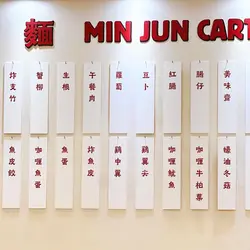 麵 MIN JUN CART
炸支竹
蟹柳
生根
午餐肉
蘿蔔
豆卜
紅腸
腸仔
黃味蛋
魚皮餃
咖喱魚蛋
魚蛋
炸魚皮
鷄中翼
鷄翼尖
咖喱魷魚
咖喱牛柏葉
蠔油冬菇